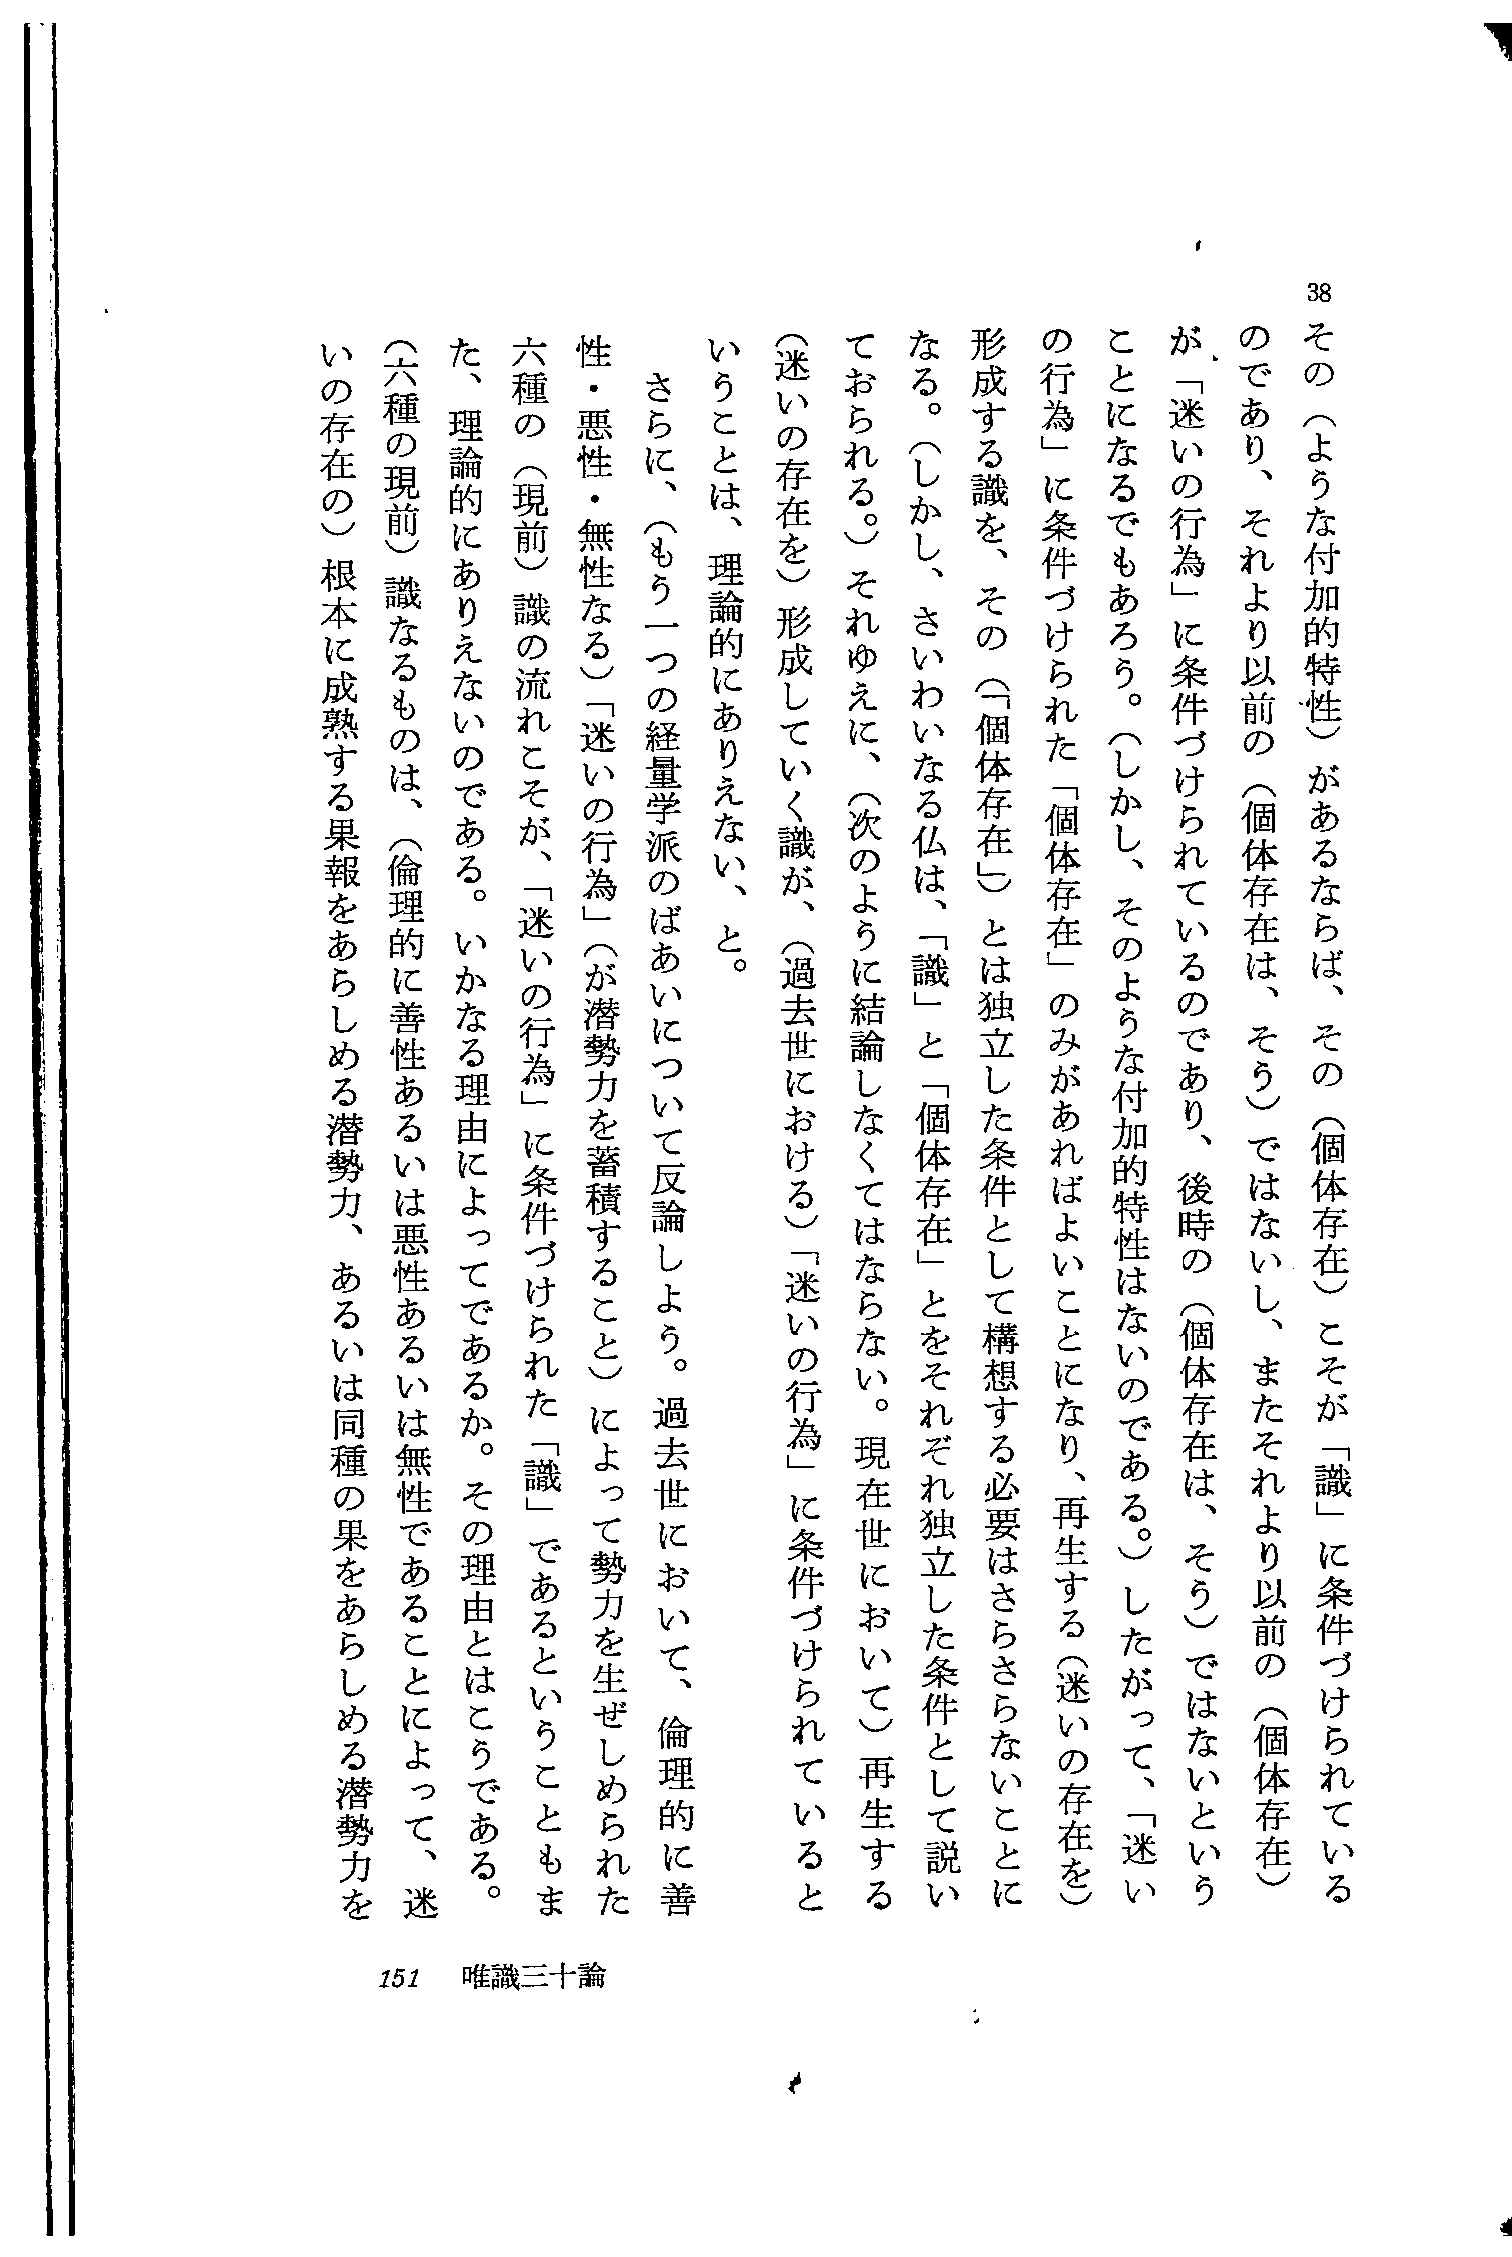 38
その（ような付加的特性）があるならば、その（個体存在）こそが「識」に条件づけられている
のであり、それより以前の（個体存在は、そう）ではないし、またそれより以前の（個体存在）
が、「迷いの行為」に条件づけられているのであり、後時の（個体存在は、そう）ではないという
ことになるでもあろう。（しかし、そのような付加的特性はないのである。）したがって、「迷い
の行為」に条件づけられた「個体存在」のみがあればよいことになり、再生する（迷いの存在を）
形成する識を、その（「個体存在」）とは独立した条件として構想する必要はさらさらないことに
なる。（しかし、さいわいなる仏は、「識」と「個体存在」とをそれぞれ独立した条件として説い
ておられる。）それゆえに、（次のように結論しなくてはならない。現在世において）再生する
（迷いの存在を）形成していく識が、（過去世における）「迷いの行為」に条件づけられていると
いうことは、理論的にありえない、と。
さらに、（もう一つの経量学派のばあいについて反論しよう。過去世において、倫理的に善
性・悪性・無性なる）「迷いの行為」（が潜勢力を蓄積すること）によって勢力を生ぜしめられた
六種の（現前）識の流れこそが、「迷いの行為」に条件づけられた「識」であるということもま
た、理論的にありえないのである。いかなる理由によってであるか。その理由とはこうである。
（六種の現前）識なるものは、（倫理的に善性あるいは悪性あるいは無性であることによって、迷
いの存在の）根本に成熟する果報をあらしめる潜勢力、あるいは同種の果をあらしめる潜勢力を
151 唯識三十論